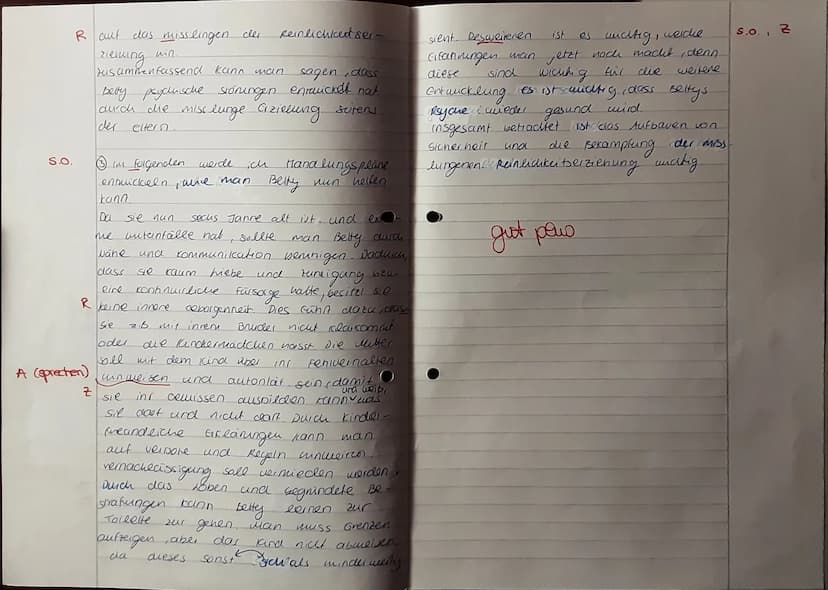 R auf das misslingen der Reinlichkeitser-
ziehung hin.
Zusammenfassend kann man sagen, dass
Betty psychische störungen entwickelt hat
durch die misslunge Erziehung seitens
der eltern.
S.O. ② Im folgenden werde ich Handlungspläne
entwickeln, wie man Betty nun helfen
kann.
Da sie nun sechs Jahre alt ist und
sollte man Betty durch
Nähe und kommunikation beruhigen. Dadurch,
dass sie kaum Liebe und
eine kontinuirliche Fürsorge hatte, besitzt sie
R keine innere Geborgenheit. Dies führt dazu, dass
sie zb mit ihrem Bruder nicht klarkommt
oder die Kindermädchen hasst. Die Mutter
soll mit dem Kind über ihr Fehlverhalten
A (sprechen) hinweisen und autorität sein, damit
Z sie ihr Gewissen ausbilden kann und weiß, was
sie darf und nicht darf. Durch kinder-
freundliche Erklärungen kann man
auf verbote und Regeln hinweisen.
vernachlässigung soll vermieden werden.
Durch das loben und begründete Be-
strafungen kann Betty lernen zur
Toilette zu gehen. Man muss Grenzen
aufzeigen, aber das Kind nicht abweisen,
da dieses sonst sich als minderwertig
sieht. Desweiteren ist es wichtig, welche S.O., Z
Erfahrungen man jetzt noch macht, denn
diese sind wichtig für die weitere
Entwicklung. Es ist wichtig, dass Bettys
Psyche wieder gesund wird.
Insgesamt betrachtet ist das Aufbauen von
Sicherheit und die Bekämpfung der miss-
lungenen Reinlichkeitserziehung wichtig.
gut